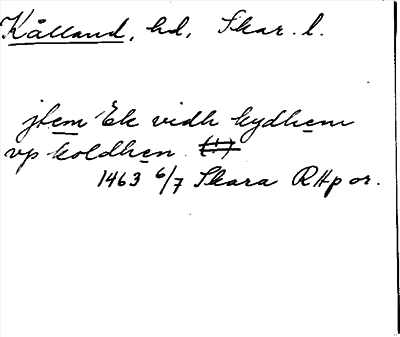 Kålland, hd, Skar. l.
jtem Ek vidh kydhem
vp koldhen (!)
1463 6/7 Skara RAp or.